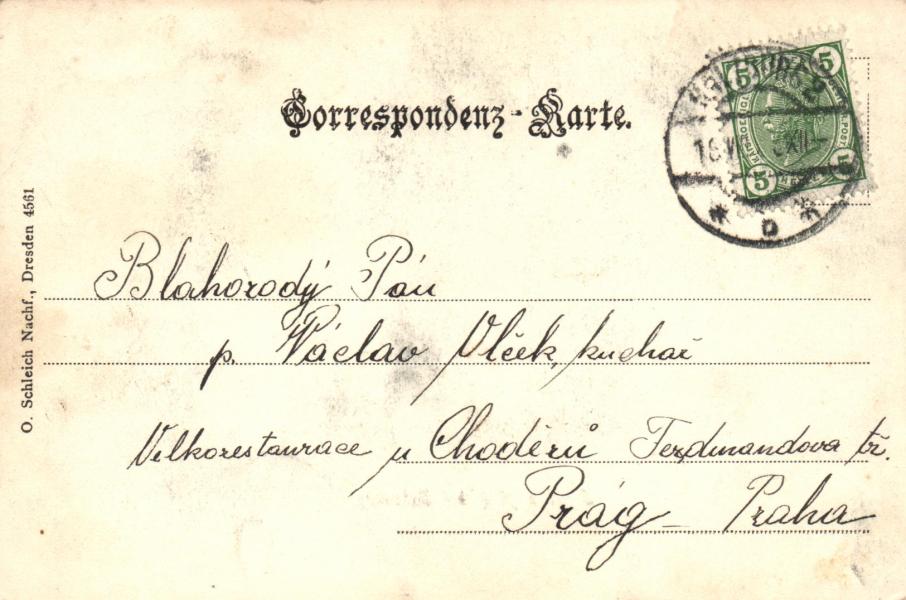 Correspondenz-Karte.
5 5
5 5
Blahorodý Pán
p. Václav Vlček, kuchař
Velkorestaurace u Choděrů Ferdinandova tř.
Prág - Praha
O. Schleich Nachf., Dresden 4561